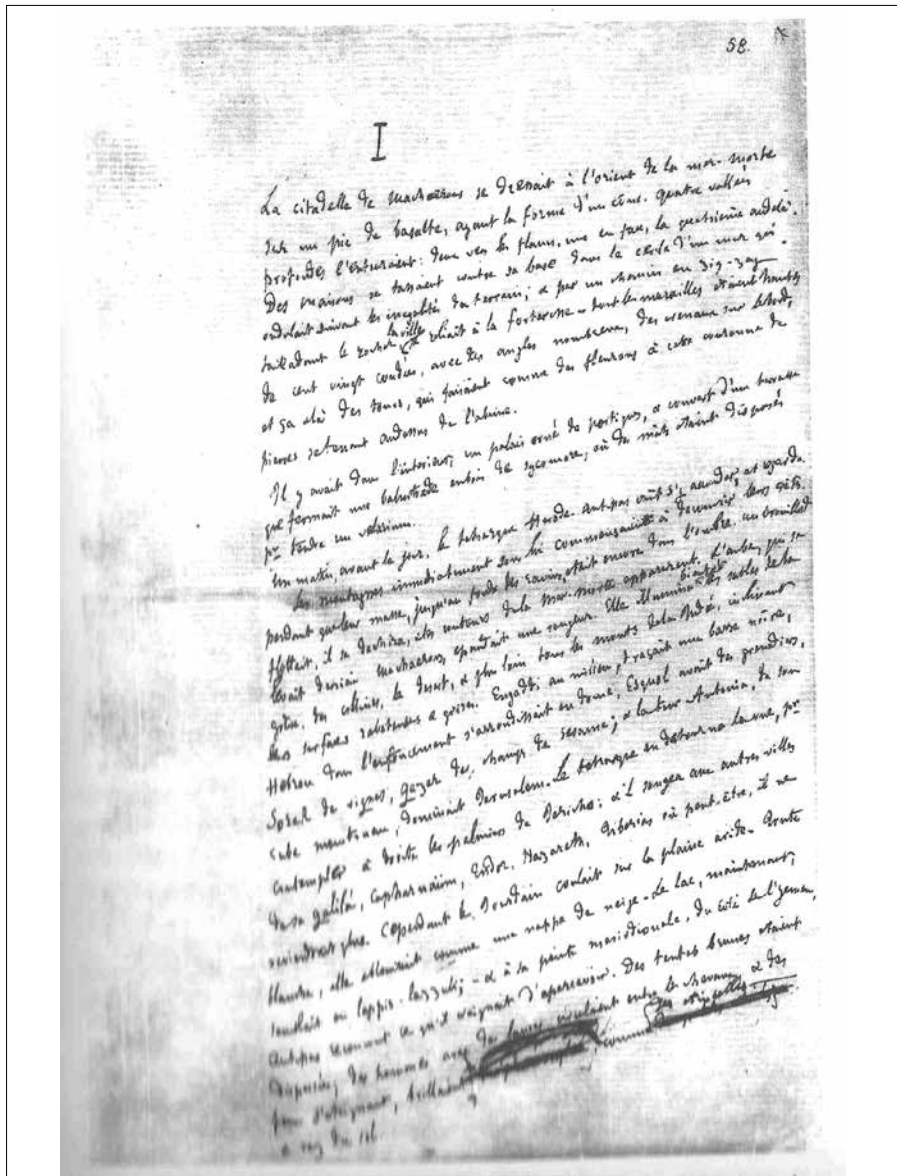 58.
I
La citadelle de Machaerous se dressait à l'orient de la mer-morte
sur un pic de basalte, ayant la forme d'un cône. quatre vallées
profondes l'entouraient: deux vers les flancs, une en face, la quatrième audelà.
Des maisons se tassaient contre sa base dans le cercle d'un mur qui
ondulait suivant les inégalités du terrain; & par un chemin en zig-zag
tailladant le rocher la ville se reliait à la forteresse - dont les murailles étaient hautes
de cent vingt coudées, avec des angles nombreux, des créneaux sur le bord,
et ça & là des tours, qui faisaient comme des fleurons à cette couronne de
pierres audessus de l'abime.
Il y avait dans l'intérieur, un palais orné de portiques, & couvert d'une terrasse
que fermait une balustrade en bois de sycomore, où des mâts étaient disposés
pr tendre un velarium.
Un matin, avant le jour, le tétrarque Hérode-Antipas vint s'y accouder, et regarda
Les montagnes immédiatement sous lui commençaient à découvrir leurs crêtes,
pendant que leur masse, jusqu'au fond des ravins, était encore dans l'ombre. un brouillard
flottait, il se déchira, & les contours de la Mer-morte apparurent. L'aube, qui se
levait derrière Machaerous, épandait une rougeur. Elle illumina bientôt les sables de la
grève, les collines, le désert, & plus loin tous les monts de la Judée, inclinant
leurs surfaces raboteuses & grises. Engaddi, au milieu, traçait une barre noire,
Hébron dans l'enfoncement s'arrondissait en dôme, Esquol avait des grenadiers,
Sorek des vignes, gazer des champs de sésame; & la tour Antonia, de son
cube monstrueux, dominait Jérusalem. Le tétrarque en détourna la vue, pr
contempler à droite les palmiers de Jéricho: & il songea aux autres villes
de sa galilée, Capharnaüm, Endor, Nazareth, Tibérias où peut-être, il ne
reviendrait plus. Cependant le Jourdain coulait sur la plaine aride. Toute
blanche, elle éblouissait comme une nappe de neige. Le lac, maintenant,
semblait en lappis-lazzuli; - & à sa pointe méridionale, du côté de l'yemen,
Antipas reconnut ce qu'il craignait d'apercevoir. Des tentes brunes étaient
dispersées, des hommes avec des lances circulaient entre les chevaux, & des
feux s'éteignant, brillaient comme des étincelles
à ras du sol.